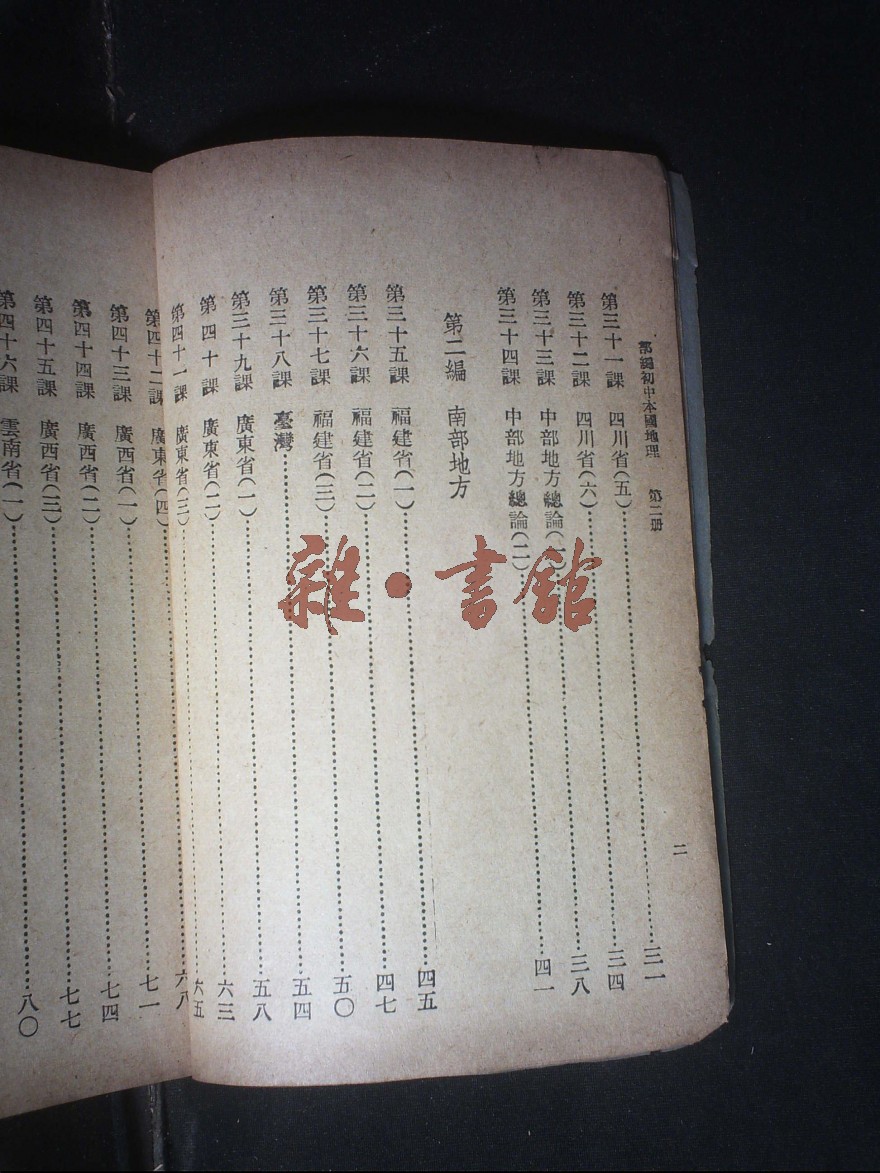 部編初中本國地理 第二册
二
第三十一課 四川省(五)三一
第三十二課 四川省(六)三四
第三十三課 中部地方總論(一)三八
第三十四課 中部地方總論(二)四一
第二編 南部地方
第三十五課 福建省(一)四五
第三十六課 福建省(二)四七
第三十七課 福建省(三)五〇
第三十八課 臺灣五四
第三十九課 廣東省(一)五八
第四十課 廣東省(二)六三
第四十一課 廣東省(三)六五
第四十二課 廣東省(四)六八
第四十三課 廣西省(一)七一
第四十四課 廣西省(二)七四
第四十五課 廣西省(三)七七
第四十六課 雲南省(一)八〇
雜·書館